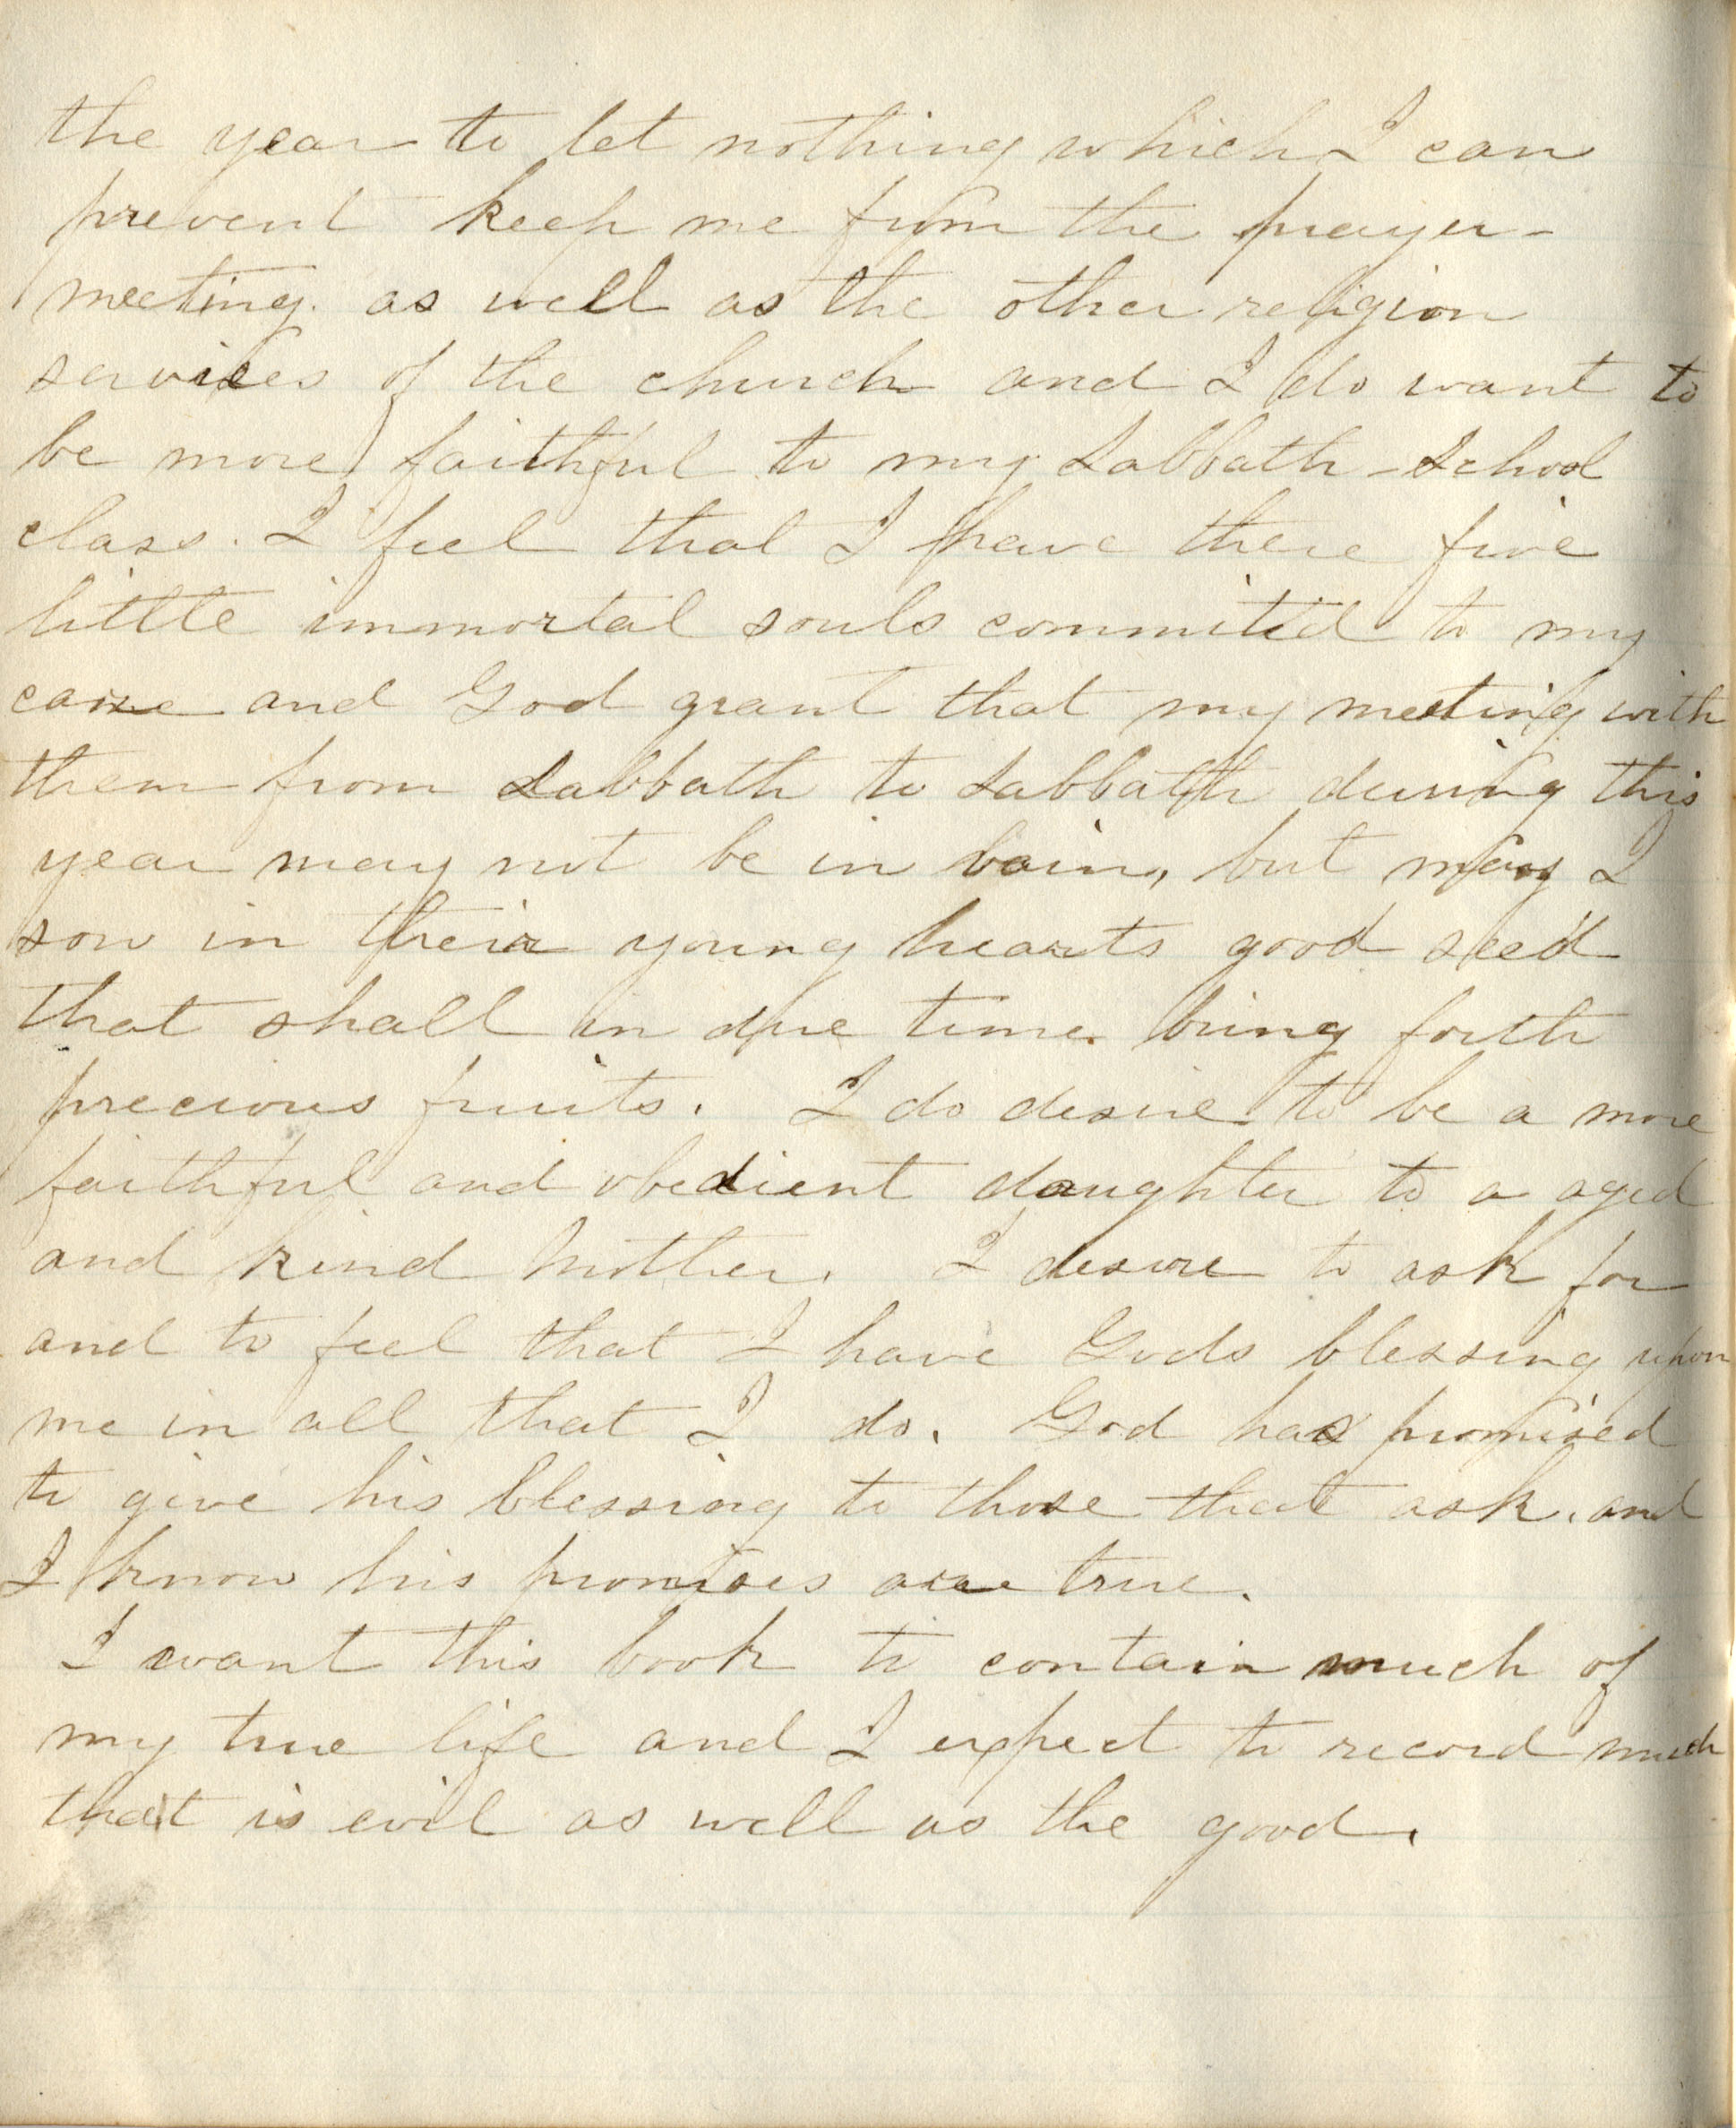 the year to let nothing which I can
prevent keep me from the prayer-
meeting. as well as the other religion
services of the church and I do want to
be more faithful to my Sabbath-School
class. I feel that I have there five
little immortal souls commited to my
care and God grant that my meeting with
them from Sabbath to Sabbath during this
year may not be in vain, but may I
sow in their young hearts good seed
that shall in due time. bring forth
precious fruits. I do desire to be a more
faithful and obedient daughter to a aged
and kind Mother. I desire to ask for
and to feel that I have Gods blessing upon
me in all that I do. God has promised
to give his blessing to those that ask. and
I know his promises are true.
I want this book to contain much of
my true life and I expect to record much
that is evil as well as the good.